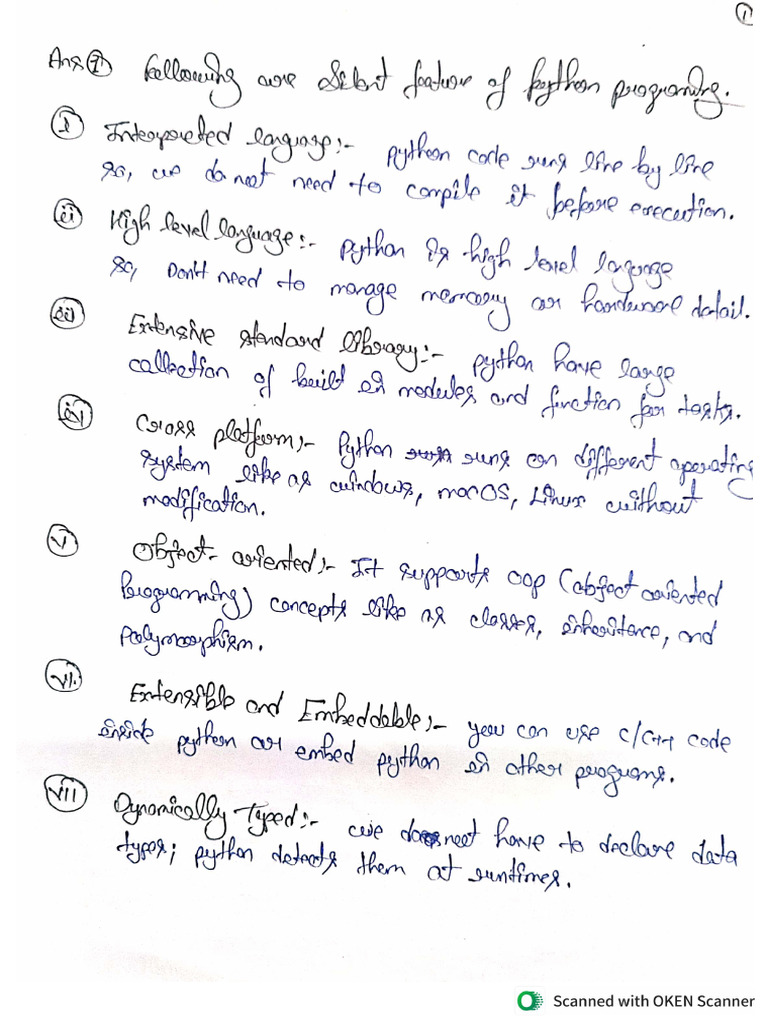 1
Ans 1 Following are Silent feature of python programing.
i Interpreted language:- python code runs line by line
so, we do not need to compile it before execution.
ii High level language:- Python is high level language
so, Don't need to manage memory or hardware detail.
iii Extensive standard library:- python have large
collection of build in modules and function for tasks.
iv Cross platform:- Python runs on different operating
system like as windows, macOS, Linux without
modification.
v Object-oriented:- It supports OOP (object oriented
Programming) concepts like as classes, inheritence, and
Polymorphism.
vi. Extensible and Embeddable:- you can use C/C++ code
inside python or embed python in other programs.
vii Dynamically Typed:- we do not have to declare data
types; python detects them at runtimes.
Scanned with OKEN Scanner